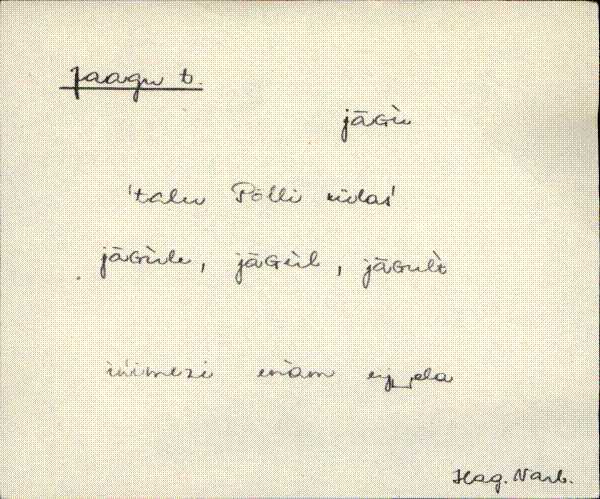 Jaagu t.
jāGù
'talu Põlli külas'
jāGùle, jāGùl, jāGult
inimezi enàm ej‿ole
Hag. Narb.